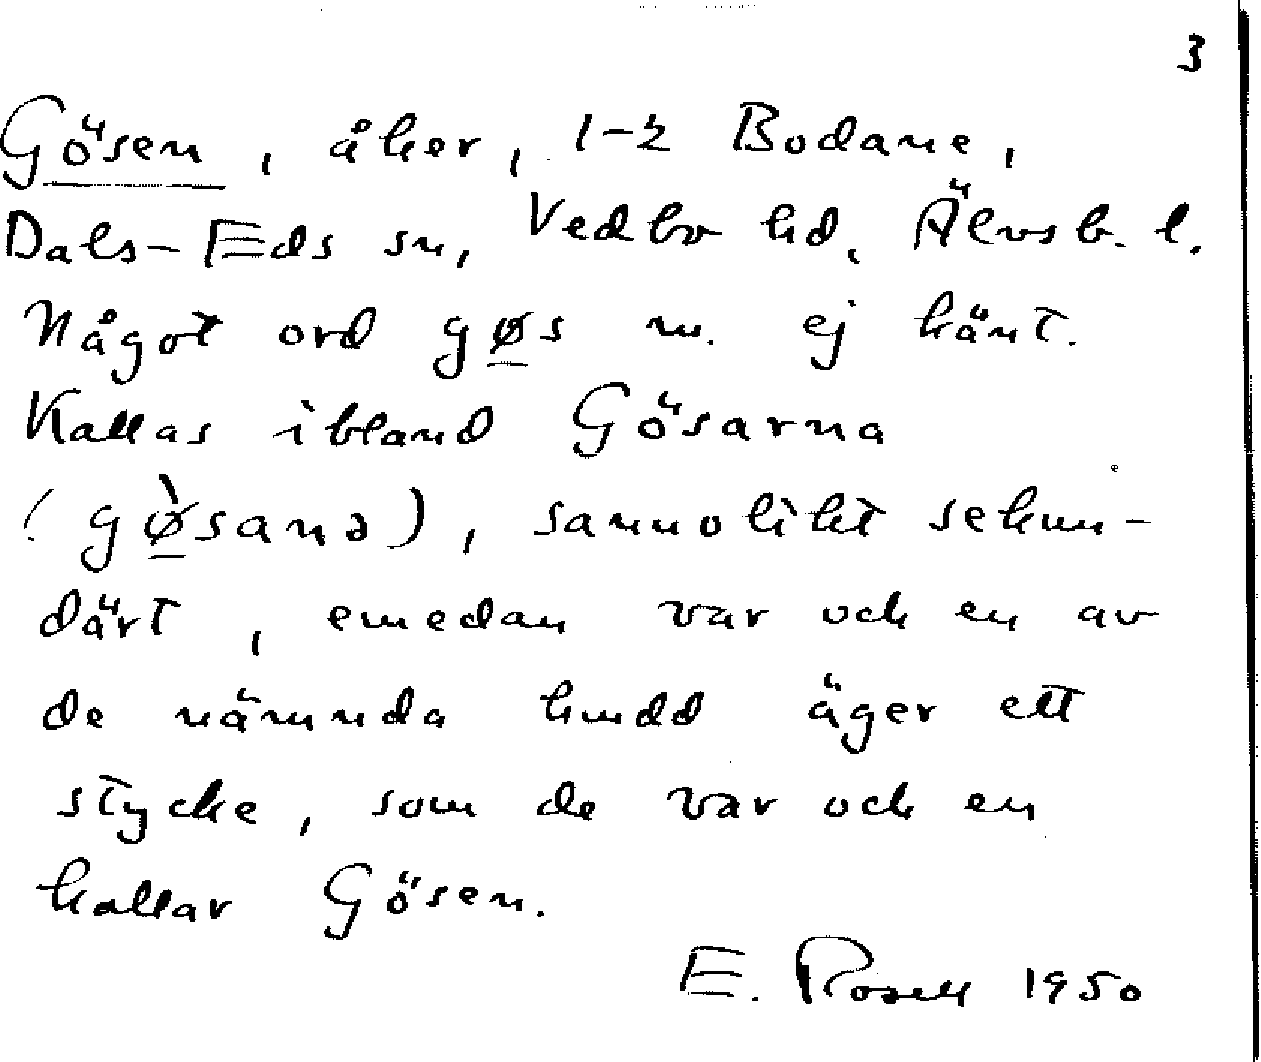 3
Gösen, åker, 1-2 Bodane,
Dals-Eds sn, Vedbo hd, Älvsb. l.
Något ord gø̲s m. ej känt.
Kallas ibland Gösarna
(gø̲̀sanə), sannolikt sekun-
därt, emedan var och en av
de nämnda hmdd äger ett
stycke, som de var och en
kallar Gösen.
E. Rosell 1950